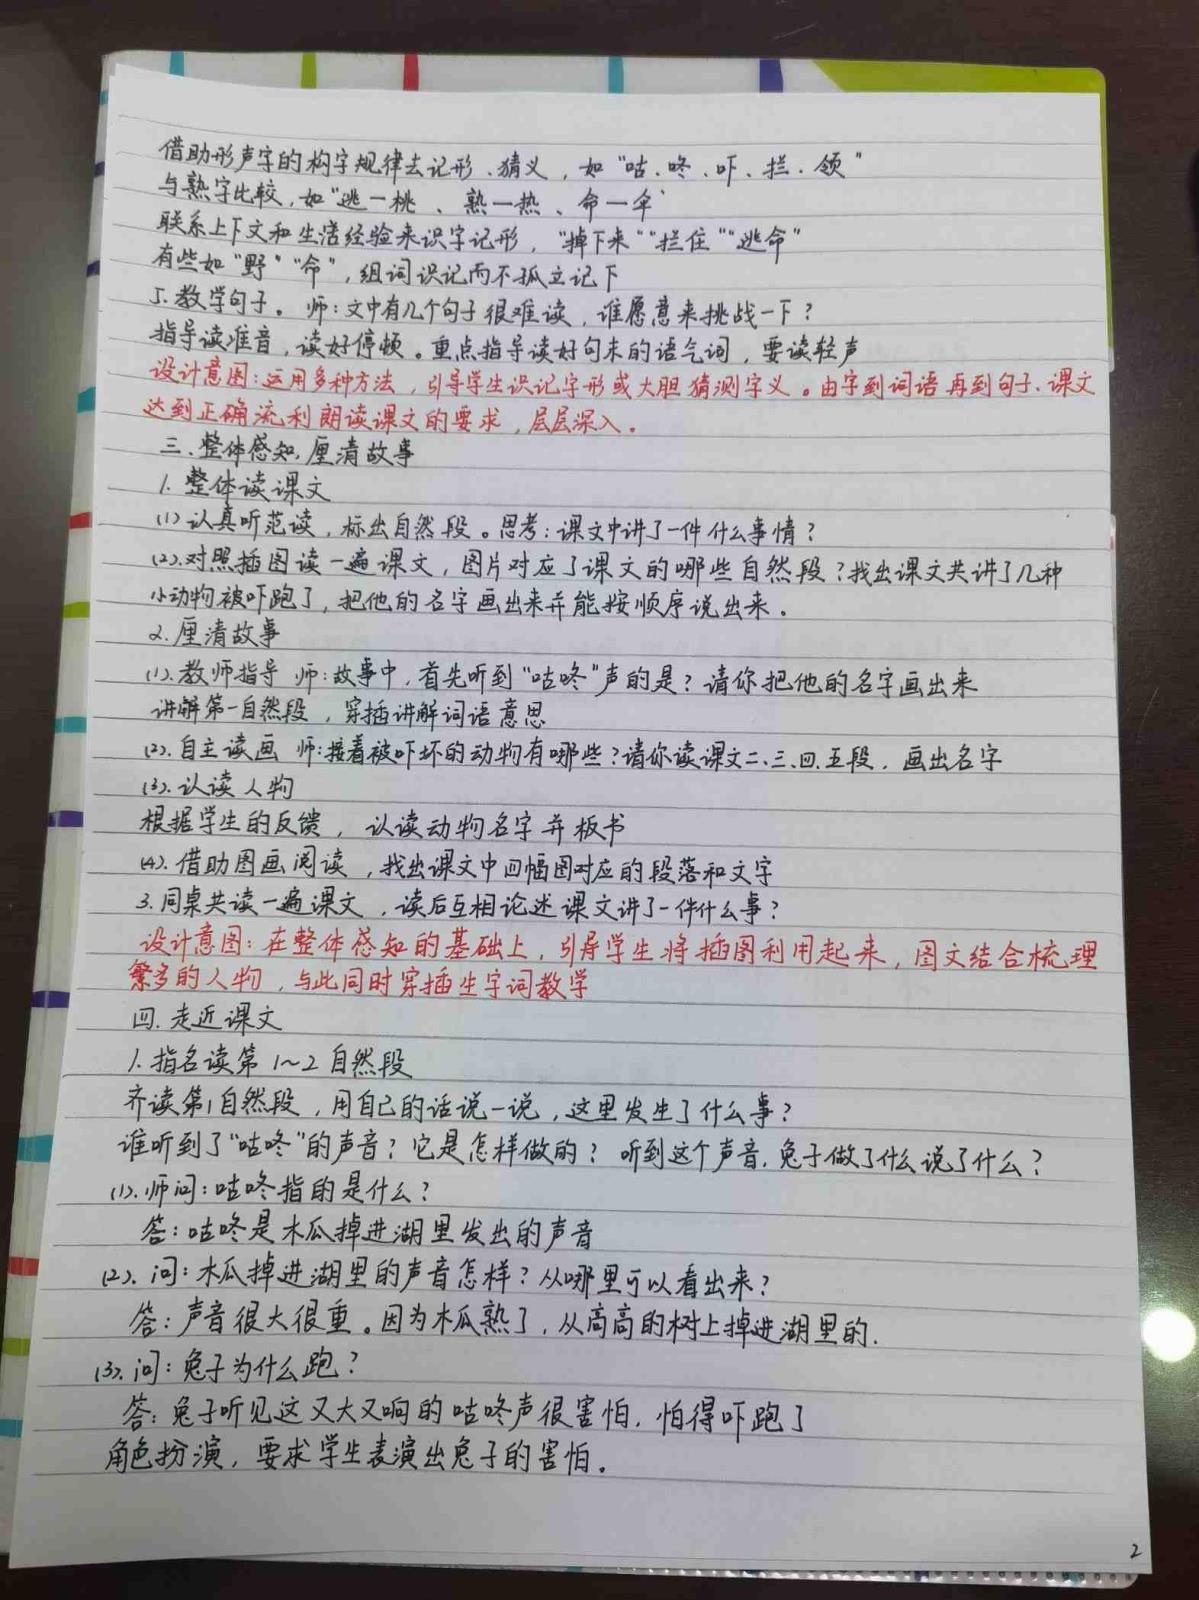 借助形声字的构字规律去记形、猜义，如“咕、咚、吓、拦、领”
与熟字比较，如“逃一桃、熟一热、命一伞”
联系上下文和生活经验来识字记形，“掉下来”“拦住”“逃命”
有些如“野”“命”，组词识记而不孤立记下
5.教学句子。师：文中有几个句子很难读，谁愿意来挑战一下？
指导读准音，读好停顿。重点指导读好句末的语气词，要读轻声
设计意图：运用多种方法，引导学生识记字形或大胆猜测字义。由字到词语再到句子、课文
达到正确流利朗读课文的要求，层层深入。
三、整体感知，厘清故事
1.整体读课文
(1)认真听范读，标出自然段。思考：课文中讲了一件什么事情？
(2).对照插图读一遍课文，图片对应了课文的哪些自然段？找出课文共讲了几种
小动物被吓跑了，把他的名字画出来并能按顺序说出来。
2.厘清故事
(1).教师指导 师：故事中，首先听到“咕咚”声的是？请你把他的名字画出来
讲解第一自然段，穿插讲解词语意思
(2).自主读画 师：接着被吓坏的动物有哪些？请你读课文二、三、四、五段，画出名字
(3).认读人物
根据学生的反馈，认读动物名字并板书
(4).借助图画阅读，找出课文中四幅图对应的段落和文字
3.同桌共读一遍课文，读后互相论述课文讲了一件什么事？
设计意图：在整体感知的基础上，引导学生将插图利用起来，图文结合梳理
繁多的人物，与此同时穿插生字词教学
四.走近课文
1.指名读第1~2自然段
齐读第1自然段，用自己的话说一说，这里发生了什么事？
谁听到了“咕咚”的声音？它是怎样做的？听到这个声音，兔子做了什么说了什么？
(1).师问：咕咚指的是什么？
答：咕咚是木瓜掉进湖里发出的声音
(2).问：木瓜掉进湖里的声音怎样？从哪里可以看出来？
答：声音很大很重。因为木瓜熟了，从高高的树上掉进湖里的.
(3).问：兔子为什么跑？
答：兔子听见这又大又响的咕咚声很害怕，怕得吓跑了
角色扮演，要求学生表演出兔子的害怕。
2